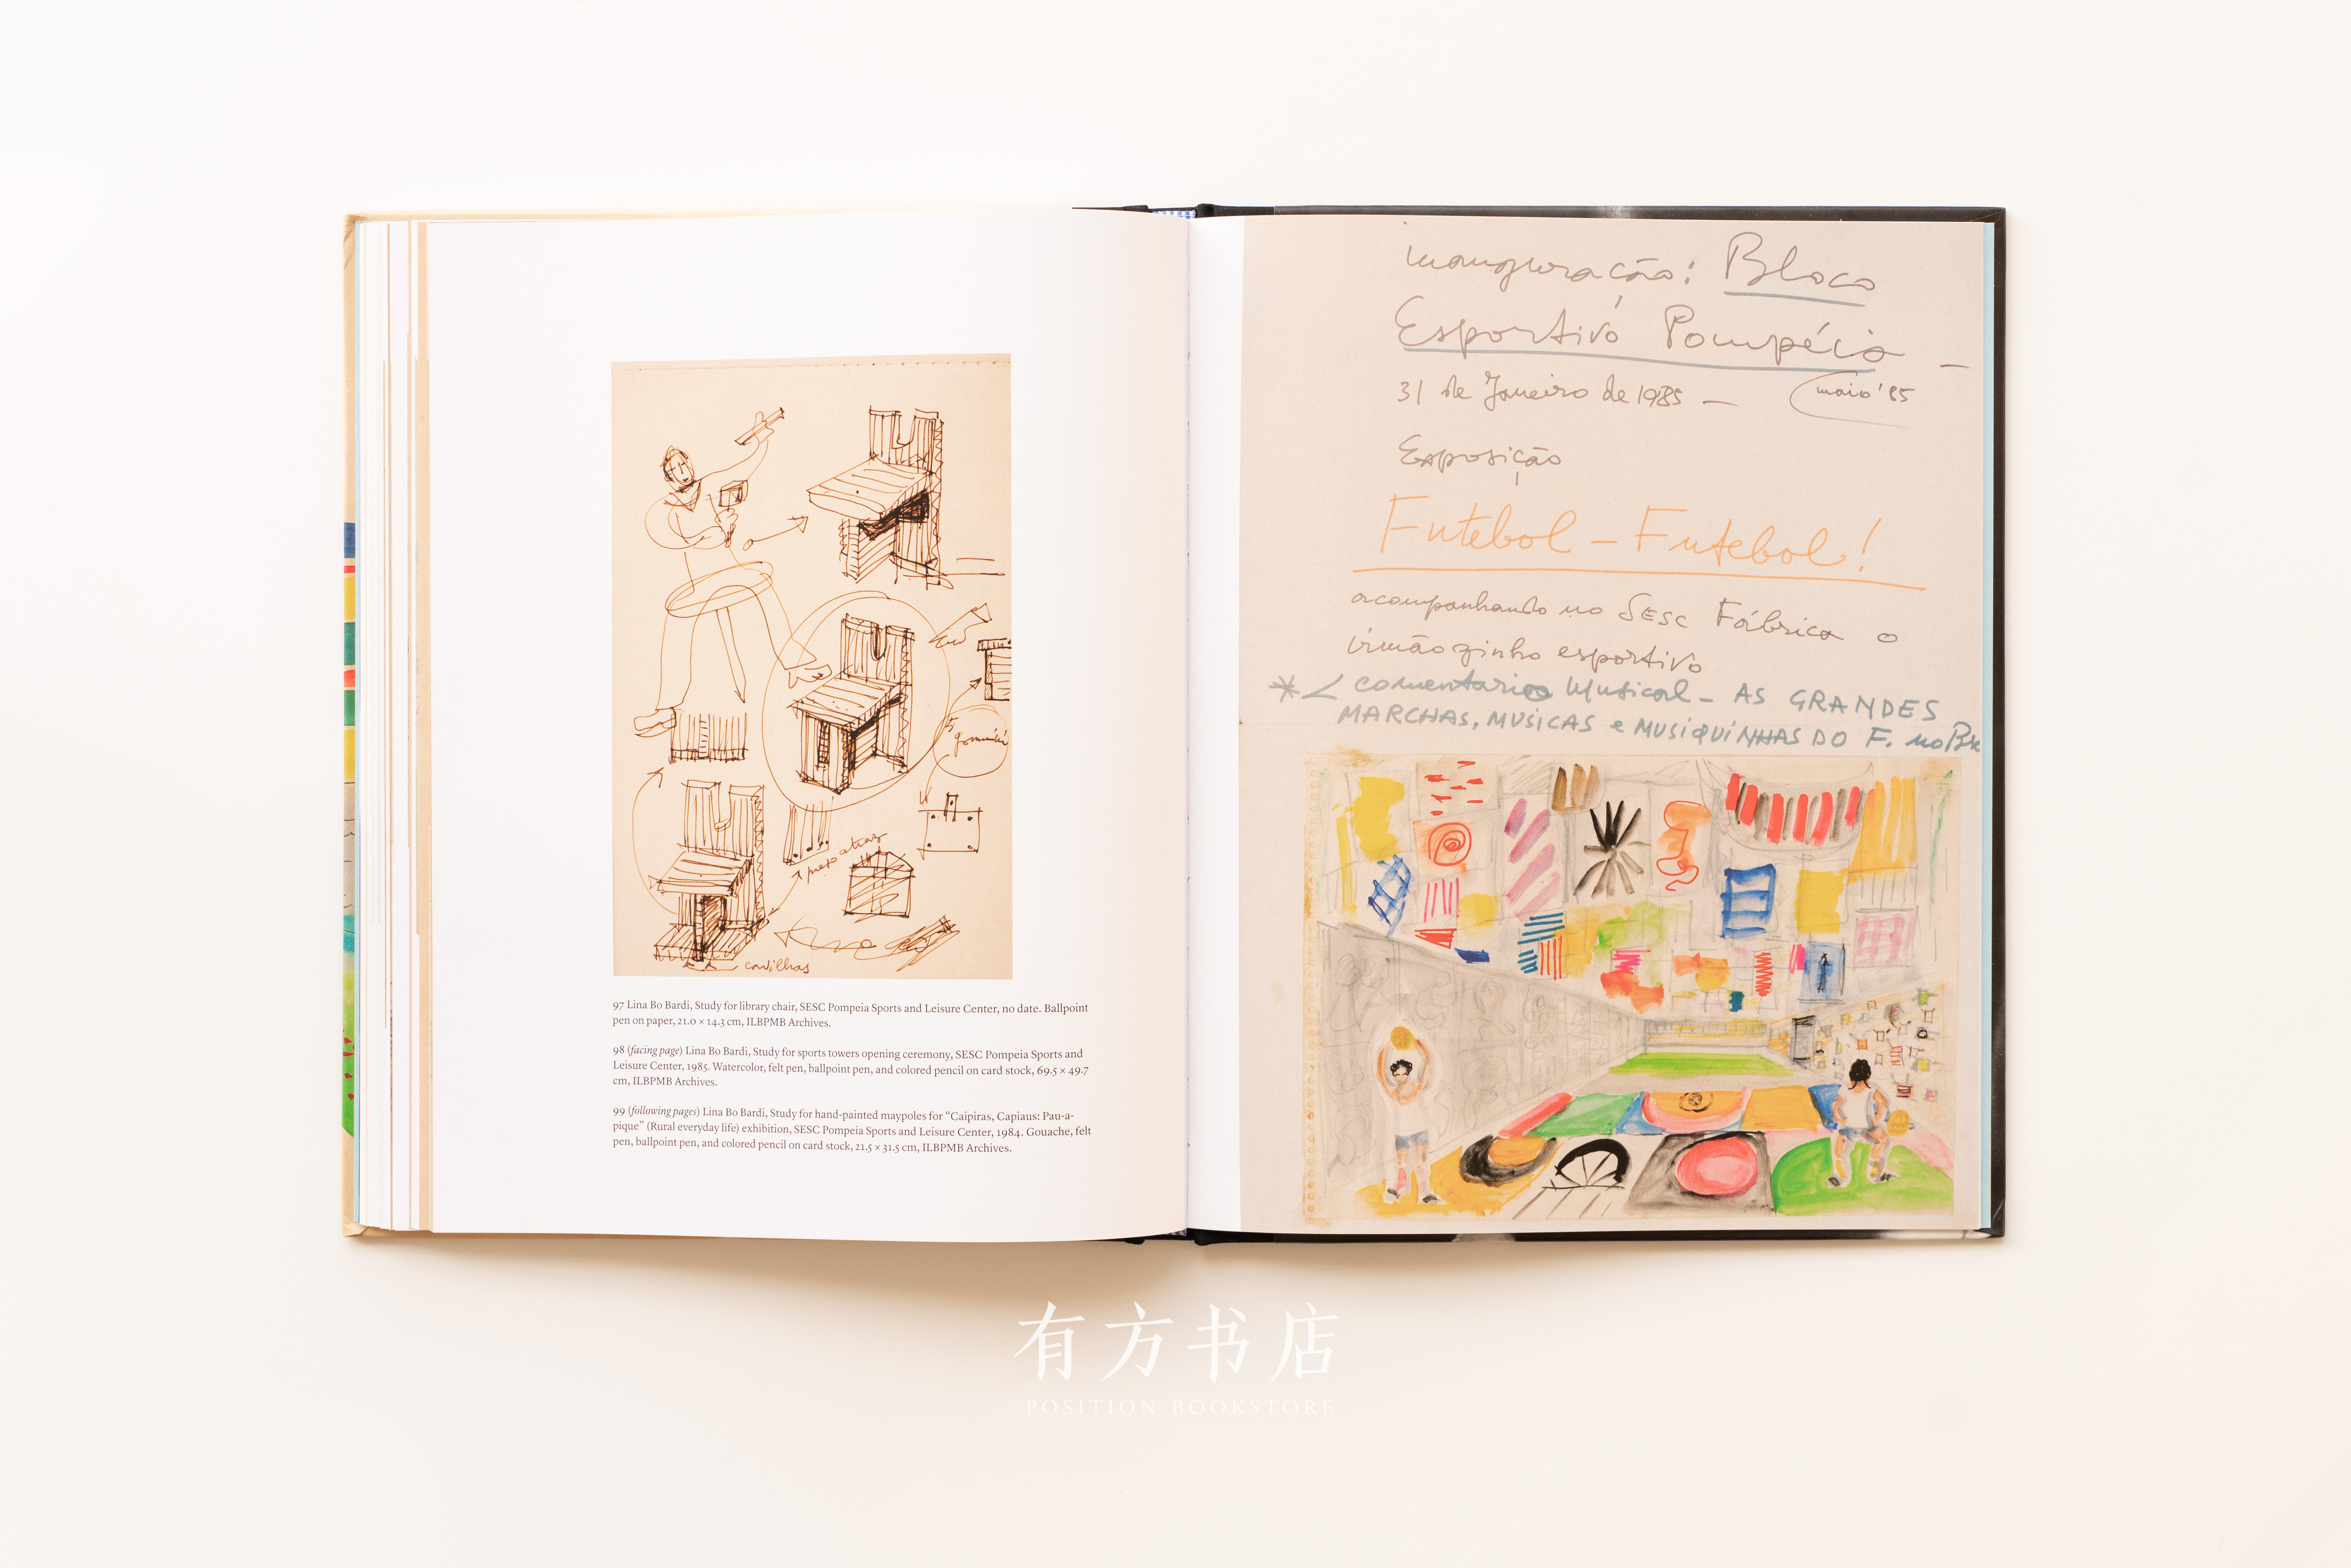 5
prep atras
cavilhas
97 Lina Bo Bardi, Study for library chair, SESC Pompeia Sports and Leisure Center, no date. Ballpoint
pen on paper, 21.0 × 14.3 cm, ILBPMB Archives.
98 (facing page) Lina Bo Bardi, Study for sports towers opening ceremony, SESC Pompeia Sports and
Leisure Center, 1985. Watercolor, felt pen, ballpoint pen, and colored pencil on card stock, 69.5 × 49.7
cm, ILBPMB Archives.
99 (following pages) Lina Bo Bardi, Study for hand-painted maypoles for “Caipiras, Capiaus: Pau-a-
pique” (Rural everyday life) exhibition, SESC Pompeia Sports and Leisure Center, 1984. Gouache, felt
pen, ballpoint pen, and colored pencil on card stock, 21.5 × 31.5 cm, ILBPMB Archives.
inauguração: Bloco
Esportivo Pompéia —
31 de Janeiro de 1985 — maio '85
Exposição
Futebol – Futebol!
acompanhando no SESC Fábrica o
irmãozinho esportivo
* comentario Musical – AS GRANDES
MARCHAS, MUSICAS e MUSIQUINHAS DO F. no
有方书店
POSITION BOOKSTORE